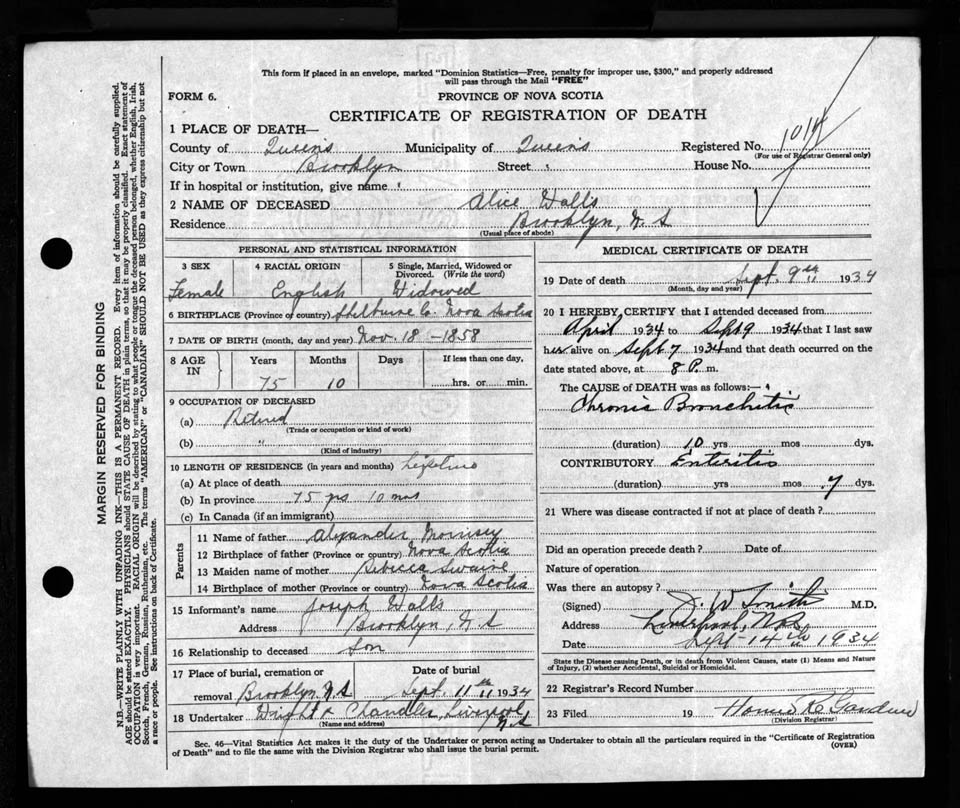 This form if placed in an envelope, marked "Dominion Statistics—Free, penalty for improper use, $300," and properly addressed
will pass through the Mail "FREE"
FORM 6.
PROVINCE OF NOVA SCOTIA
CERTIFICATE OF REGISTRATION OF DEATH
1 PLACE OF DEATH—
County of Queens Municipality of Queens Registered No. 1014
(For use of Registrar General only)
City or Town Brooklyn Street House No.
If in hospital or institution, give name
2 NAME OF DECEASED Alice Walls
Residence Brooklyn, N.S
(Usual place of abode)
PERSONAL AND STATISTICAL INFORMATION
3 SEX 4 RACIAL ORIGIN 5 Single, Married, Widowed or
Divorced. (Write the word)
Female English Widowed
6 BIRTHPLACE (Province or country) Shelburne Co. Nova Scotia
7 DATE OF BIRTH (month, day and year) Nov. 18 - 1858
8 AGE IN Years Months Days If less than one day,
75 10 hrs. or min.
9 OCCUPATION OF DECEASED
(a) Retired
(Trade or occupation or kind of work)
(b) "
(Kind of industry)
10 LENGTH OF RESIDENCE (in years and months) Lifetime
(a) At place of death
(b) In province 75 yrs 10 mos
(c) In Canada (if an immigrant)
Parents
11 Name of father Alexander Morrisey
12 Birthplace of father (Province or country) Nova Scotia
13 Maiden name of mother Rebecca Swaine
14 Birthplace of mother (Province or country) Nova Scotia
15 Informant's name Joseph Walls
Address Brooklyn, N.S
16 Relationship to deceased Son
17 Place of burial, cremation or Date of burial
removal Brooklyn N.S Sept. 11th 1934
18 Undertaker Wright & Chandler, Liverpool
(Name and address) N.S
MEDICAL CERTIFICATE OF DEATH
19 Date of death Sept. 9th 1934
(Month, day and year)
20 I HEREBY CERTIFY that I attended deceased from
April 1934 to Sept 9 1934 that I last saw
her alive on Sept 7 1934 and that death occurred on the
date stated above, at 8 P. m.
The CAUSE of DEATH was as follows:—
Chronic Bronchitis
(duration) 10 yrs mos dys.
CONTRIBUTORY Enteritis
(duration) yrs mos 7 dys.
21 Where was disease contracted if not at place of death?
Did an operation precede death? Date of
Nature of operation
Was there an autopsy?
(Signed) J. W. Smith M.D.
Address Liverpool, N.S.
Date Sept-14th 1934
State the Disease causing Death, or in death from Violent Causes, state (1) Means and Nature
of Injury, (2) whether Accidental, Suicidal or Homicidal.
22 Registrar's Record Number
23 Filed 19
(Division Registrar)
Sec. 46—Vital Statistics Act makes it the duty of the Undertaker or person acting as Undertaker to obtain all the particulars required in the "Certificate of Registration
of Death" and to file the same with the Division Registrar who shall issue the burial permit.
(OVER)
MARGIN RESERVED FOR BINDING
N.B.—WRITE PLAINLY WITH UNFADING INK—THIS IS A PERMANENT RECORD. Every item of information should be carefully supplied.
AGE should be stated EXACTLY. PHYSICIANS should STATE CAUSE OF DEATH in plain terms, so that it may be properly classified. Exact statement of
OCCUPATION is very important. RACIAL ORIGIN will be described by stating to what people or tongue the deceased person belonged, whether English, Irish,
Scotch, French, German, Russian, Ruthenian, etc. The terms "AMERICAN" or "CANADIAN" SHOULD NOT BE USED as they express citizenship but not
a race or people. See instructions on back of Certificate.